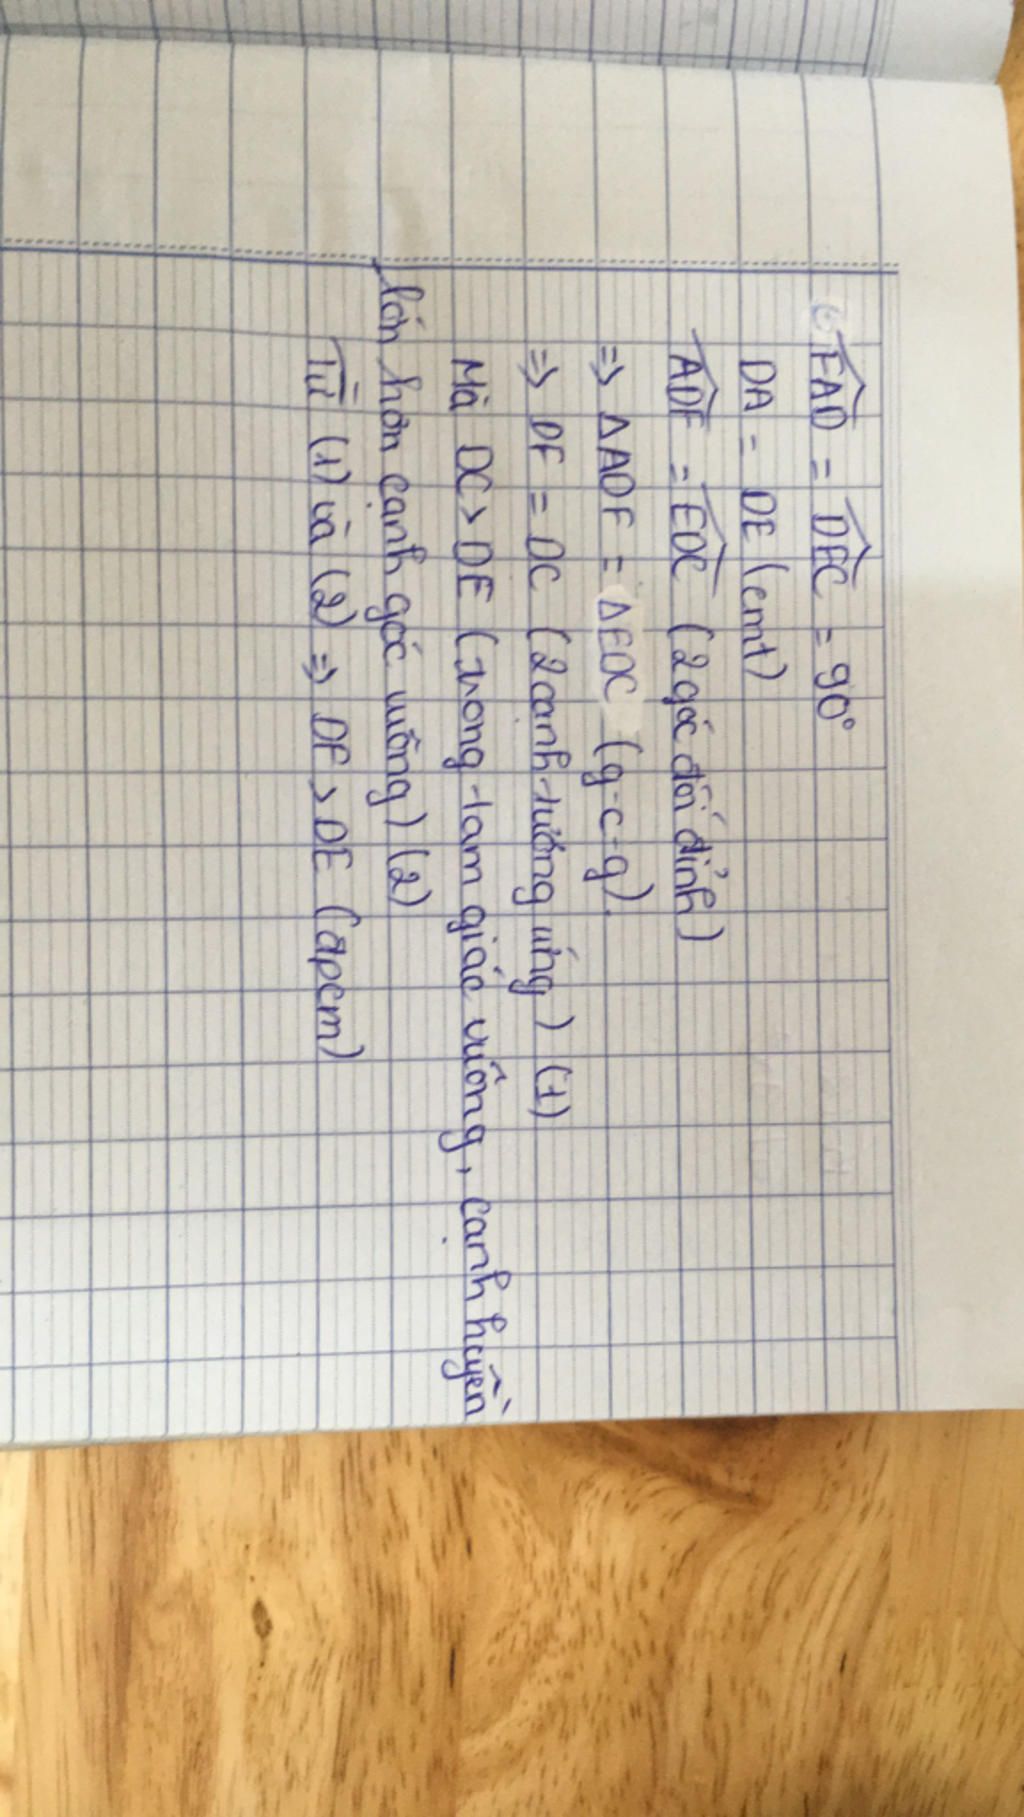 c) FAD = DEC = 90°
DA = DE (cmt)
ADF = EDC (2 góc đối đỉnh)
=> ΔADF = ΔEDC (g-c-g).
=> DF = DC (2 cạnh tương ứng) (1)
Mà DC > DE (trong tam giác vuông, cạnh huyền
lớn hơn cạnh góc vuông) (2)
Từ (1) và (2) => DF > DE (đpcm)